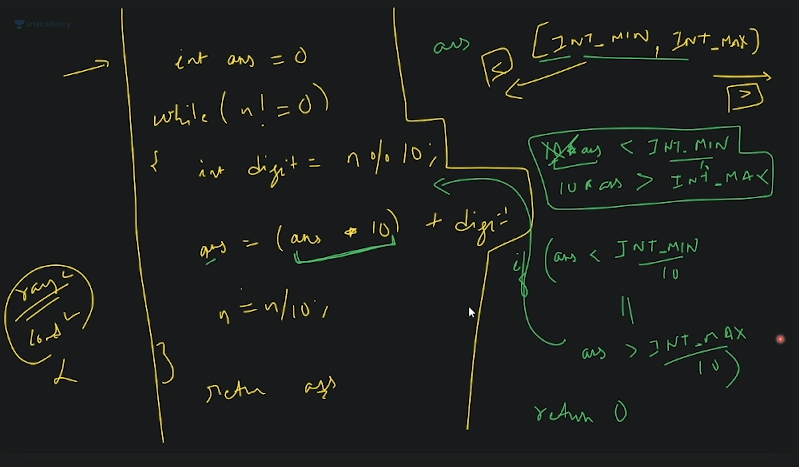 unacademy
int ans = 0
while ( n! = 0 )
{ int digit = n % 10 ;
ans = (ans * 10) + digit
n = n/10 ;
}
return ans
ans [INT_MIN, INT_MAX]
<
>
10 * ans < INT_MIN
10 * ans > INT_MAX
if (ans < INT_MIN
10
||
ans > INT_MAX
10 )
return 0